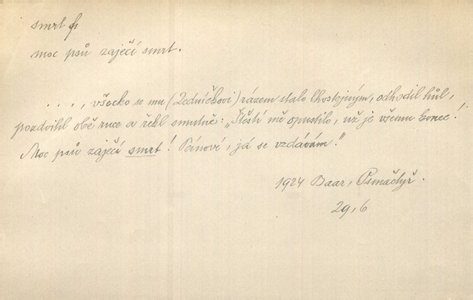 smrt f.
moc psů zaječí smrt.
...., všecko se mu (Zedníčkovi) rázem stalo lhostejným, odhodil hůl,
pozdvihl obě ruce a řekl smutně: „Štěstí mě opustilo, už je všemu konec!
Moc psů zaječí smrt! Pánové, já se vzdávám."
1924 Baar, Osmačtyř.
29,6